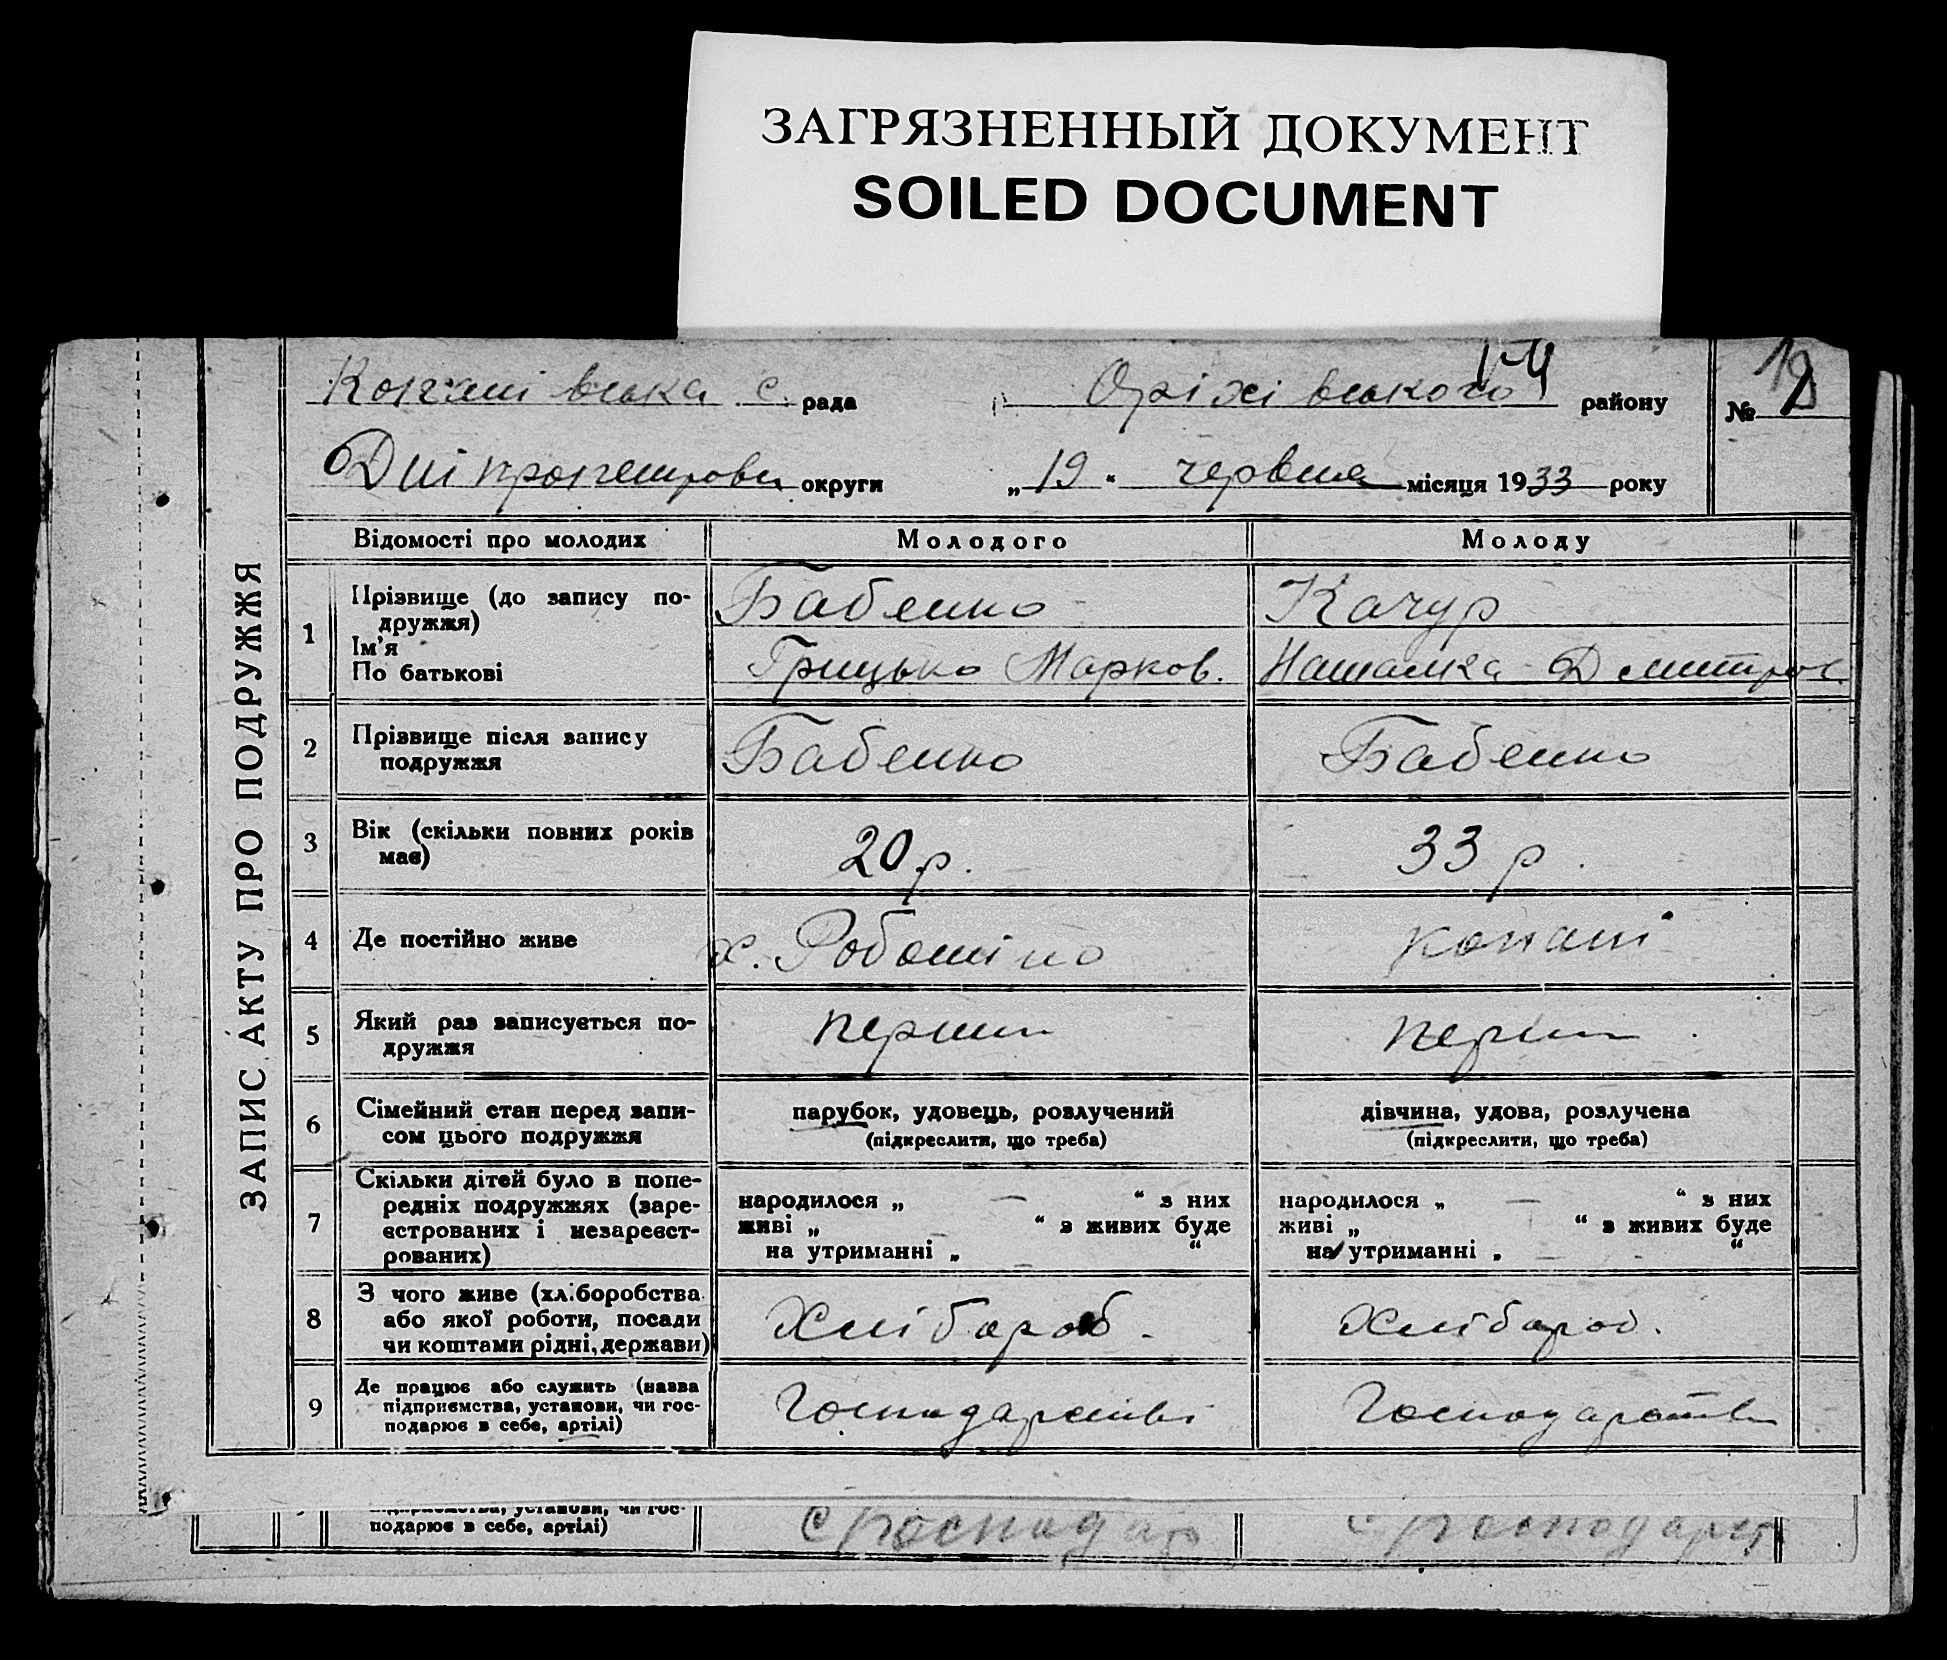 ЗАГРЯЗНЕННЫЙ ДОКУМЕНТ
SOILED DOCUMENT
Копанівська с. рада Оріхівського району №
Дніпропетровс округи „ 19 “ червня місяця 1933 року
ЗАПИС АКТУ ПРО ПОДРУЖЖЯ
Відомості про молодих Молодого Молоду
1 Прізвище (до запису по-
дружжя)
Ім'я
По батькові
Бабенко
Грицько Марков.
Качур
Наталка Дмитров.
2 Прізвище після запису
подружжя
Бабенко Бабенко
3 Вік (скільки повних років
має)
20 р. 33 р.
4 Де постійно живе х. Роботіно Копані
5 Який раз записується по-
дружжя
перши перши
6 Сімейний стан перед запи-
сом цього подружжя
парубок, удовець, розлучений
(підкреслити, що треба)
дівчина, удова, розлучена
(підкреслити, що треба)
7 Скільки дітей було в попе-
редніх подружжях (заре-
єстрованих і незареєст-
рованих)
народилося „ — “ з них
живі „ — “ з живих буде
на утриманні „ — “
народилося „ — “ з них
живі „ — “ з живих буде
на утриманні „ — “
8 З чого живе (хліборобства
або якої роботи, посади
чи коштами рідні, держави)
Хлібороб. Хлібороб.
9 Де працює або служить (назва
підприємства, установи, чи гос-
подарює в себе, артілі)
Господарстві Господарстві
підприємства, установи, чи гос-
подарює в себе, артілі)
с господар с господарст